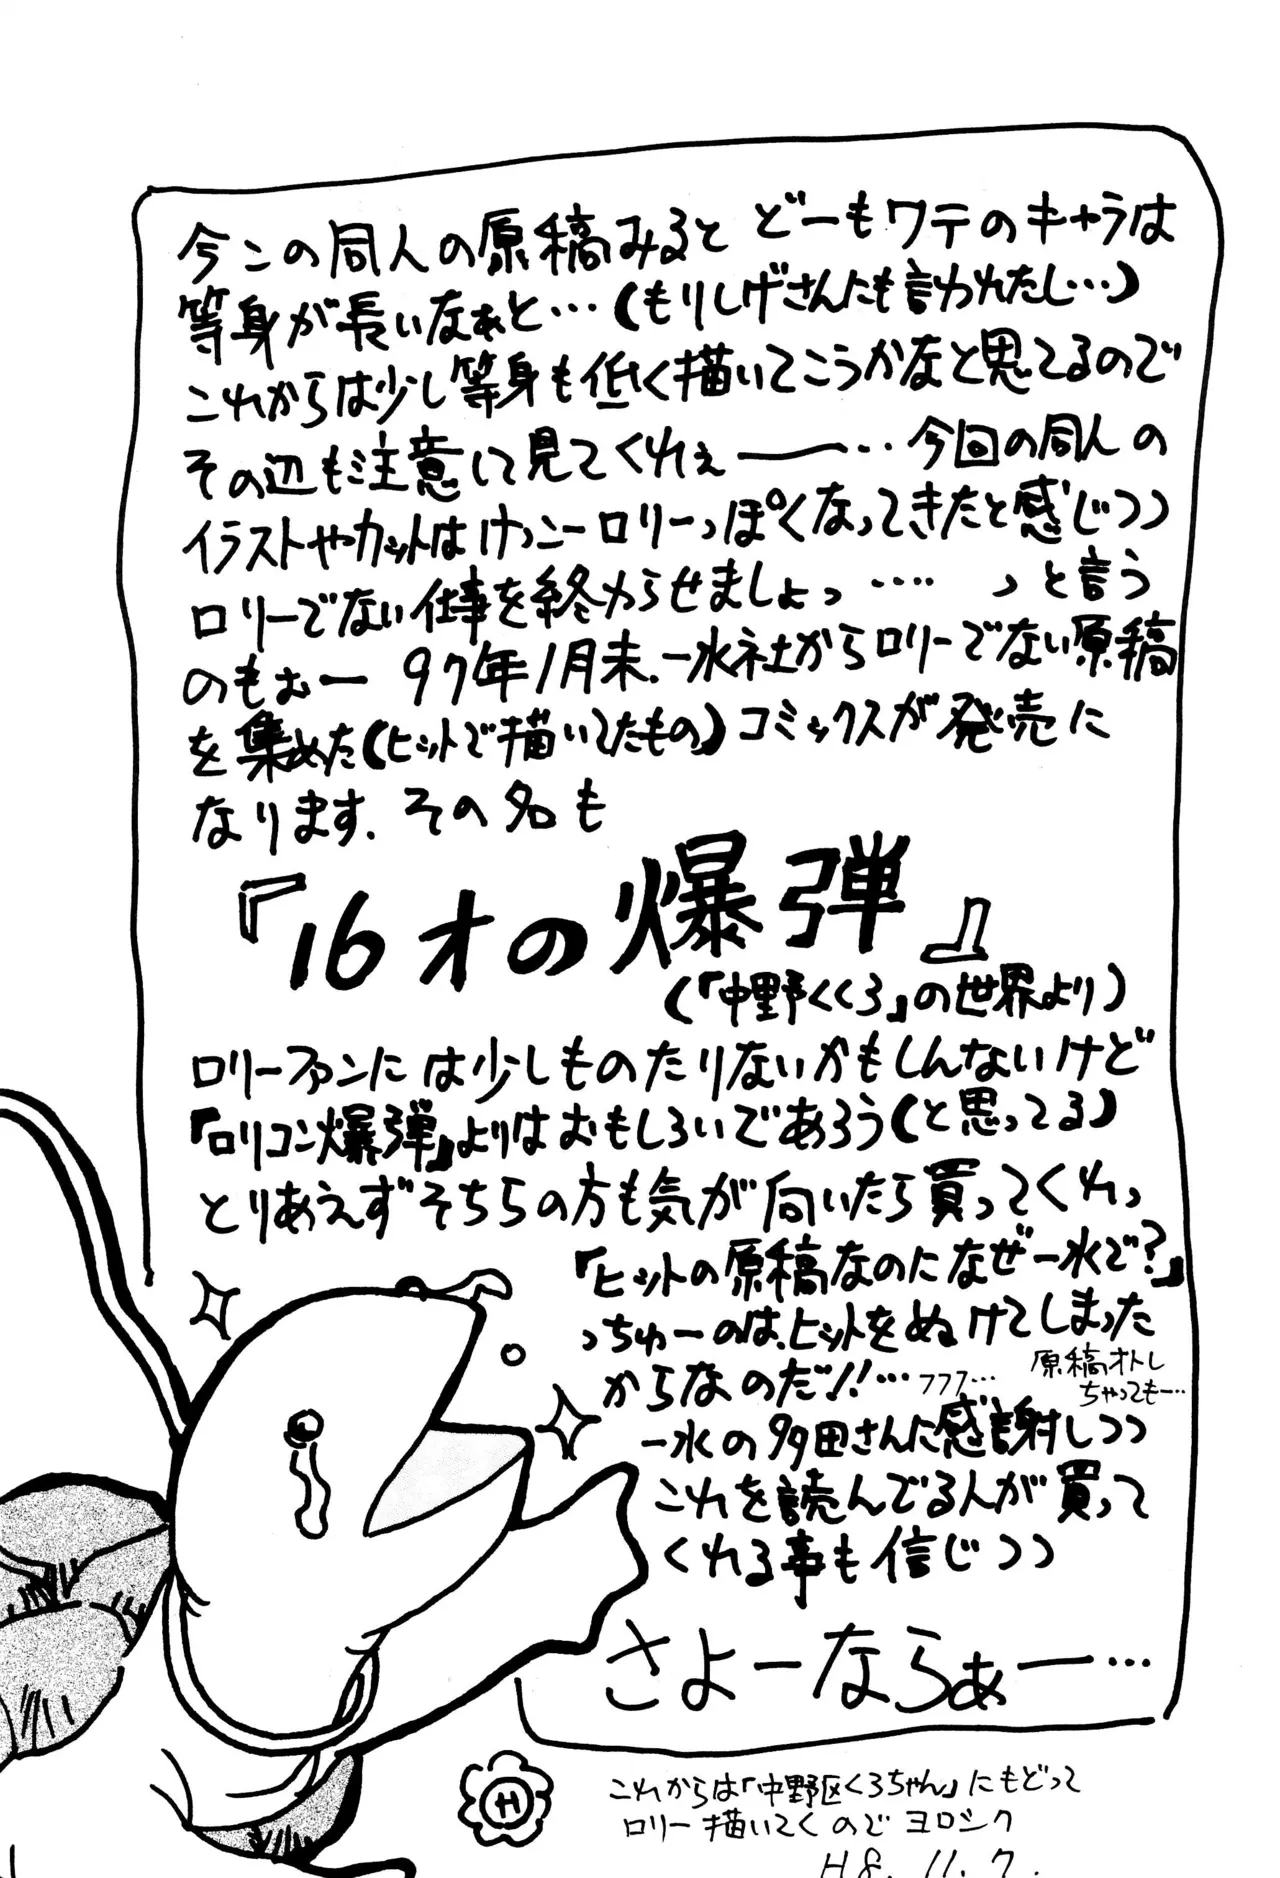 今この同人の原稿みると どーもワテのキャラは
等身が長いなぁと…(もりしげさんにも言われたし…)
これからは少し等身も低く描いてこうかなと思てるので
その辺も注意して見てくれぇ――…今回の同人の
イラストやカットはけっこーロリーっぽくなってきたと感じつつ
ロリーでない仕事を終わらせましょっ…‥ っと言う
のもぉー 97年1月末.一水社からロリーでない原稿
を集めた(ヒットで描いてたもの)コミックスが発売に
なります.その名も
『16才の爆弾』
(「中野くくろ」の世界より)
ロリーファンには少しものたりないかもしんないけど
『ロリコン爆弾』よりはおもしろいであろう(と思ってる)
とりあえずそちらの方も気が向いたら買ってくれっ
「ヒットの原稿なのになぜ一水で?」
っちゅーのは、ヒットをぬけてしまった
からなのだ!!…フフフ…
原稿オトし
ちゃってもー…
一水の多田さんに感謝しつつ
これを読んでる人が買って
くれる事も信じつつ
さよーならぁー…
H
これからは「中野区くろちゃん」にもどって
ロリー描いてくのでヨロシク
H8.11.7.